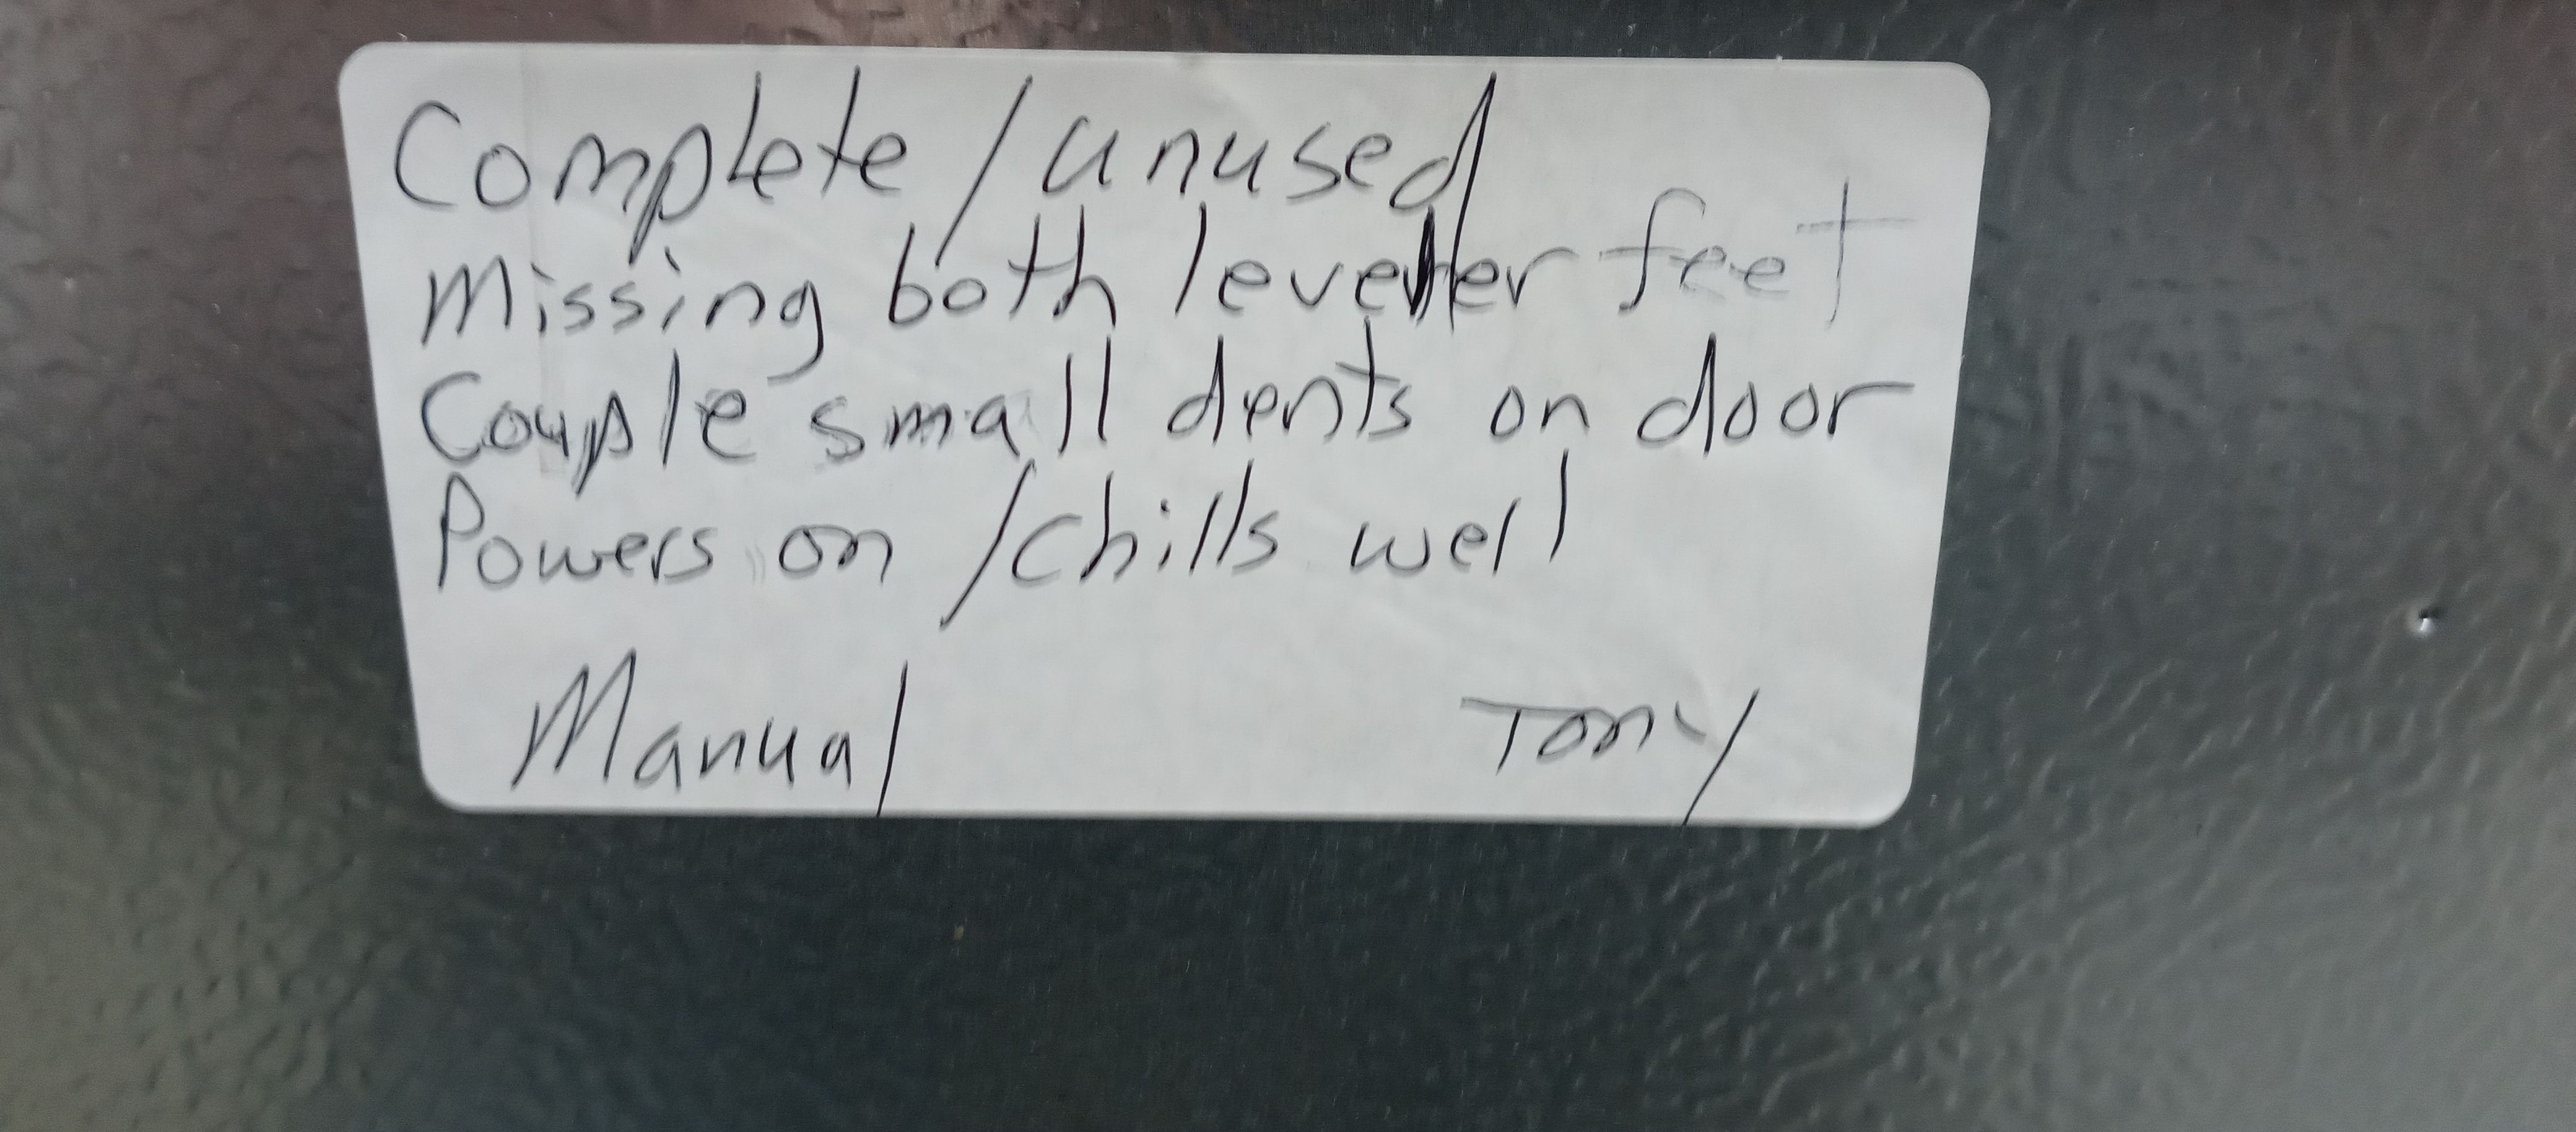 Complete / unused
Missing both leveler feet
Couple small dents on door
Powers on / chills well
Manual Tony